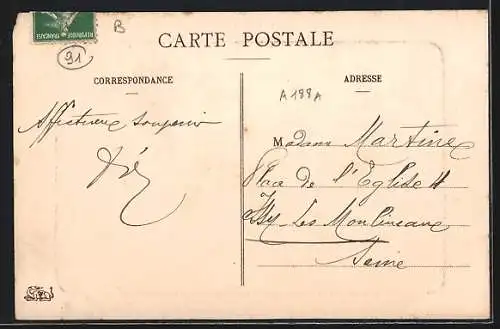 RÉPUBLIQUE FRANÇAISE
B
91
CARTE POSTALE
CORRESPONDANCE
ADRESSE
A 188 A
Affectueux Souvenir
Madame Martine
Place de l'Eglise 11
à Issy Les Moulineaux
Seine